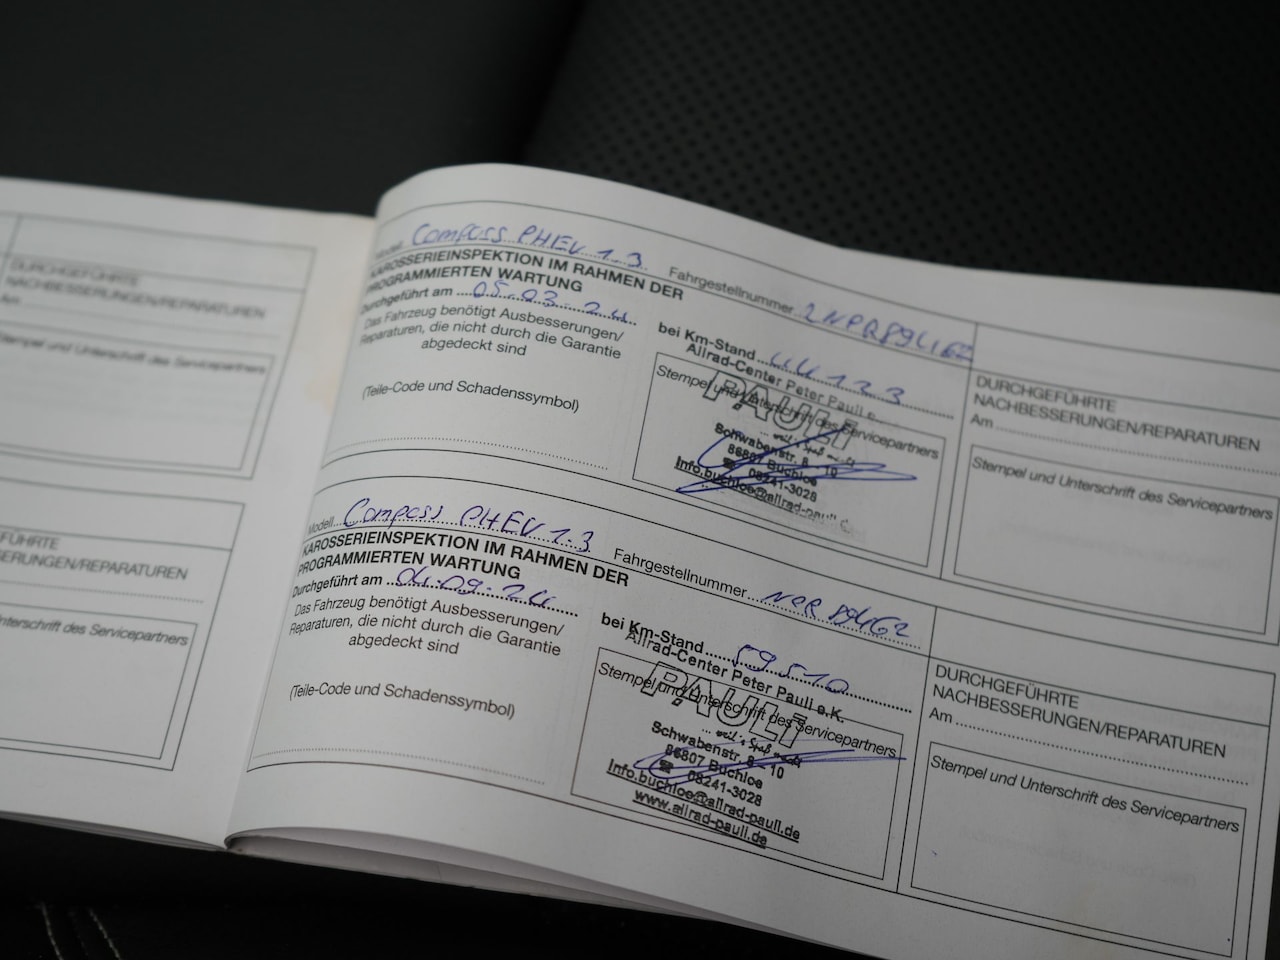 DURCHGEFÜHRTE
NACHBESSERUNGEN/REPARATUREN
Am
Stempel und Unterschrift des Servicepartners
FÜHRTE
SERUNGEN/REPARATUREN
Unterschrift des Servicepartners
Modell Compass PHEV 1.3 Fahrgestellnummer
KAROSSERIEINSPEKTION IM RAHMEN DER
PROGRAMMIERTEN WARTUNG
Durchgeführt am 05.03.24 bei Km-Stand 44123
Das Fahrzeug benötigt Ausbesserungen/
Reparaturen, die nicht durch die Garantie
abgedeckt sind
(Teile-Code und Schadenssymbol)
Allrad-Center Peter Pauli e.
Stempel und Unterschrift des Servicepartners
PAULI
... weil's Spaß macht
Schwabenstr. 8 - 10
86807 Buchloe
☎ 08241-3028
Info.buchloe@allrad-pauli.
DURCHGEFÜHRTE
NACHBESSERUNGEN/REPARATUREN
Am
Stempel und Unterschrift des Servicepartners
Modell Compass PHEV 1.3 Fahrgestellnummer NPR89462
KAROSSERIEINSPEKTION IM RAHMEN DER
PROGRAMMIERTEN WARTUNG
Durchgeführt am 04.09.24 bei Km-Stand 59510
Das Fahrzeug benötigt Ausbesserungen/
Reparaturen, die nicht durch die Garantie
abgedeckt sind
(Teile-Code und Schadenssymbol)
Allrad-Center Peter Pauli e.K.
Stempel und Unterschrift des Servicepartners
PAULI
... weil's Spaß macht
Schwabenstr. 8 - 10
86807 Buchloe
☎ 08241-3028
Info.buchloe@allrad-pauli.de
www.allrad-pauli.de
DURCHGEFÜHRTE
NACHBESSERUNGEN/REPARATUREN
Am
Stempel und Unterschrift des Servicepartners